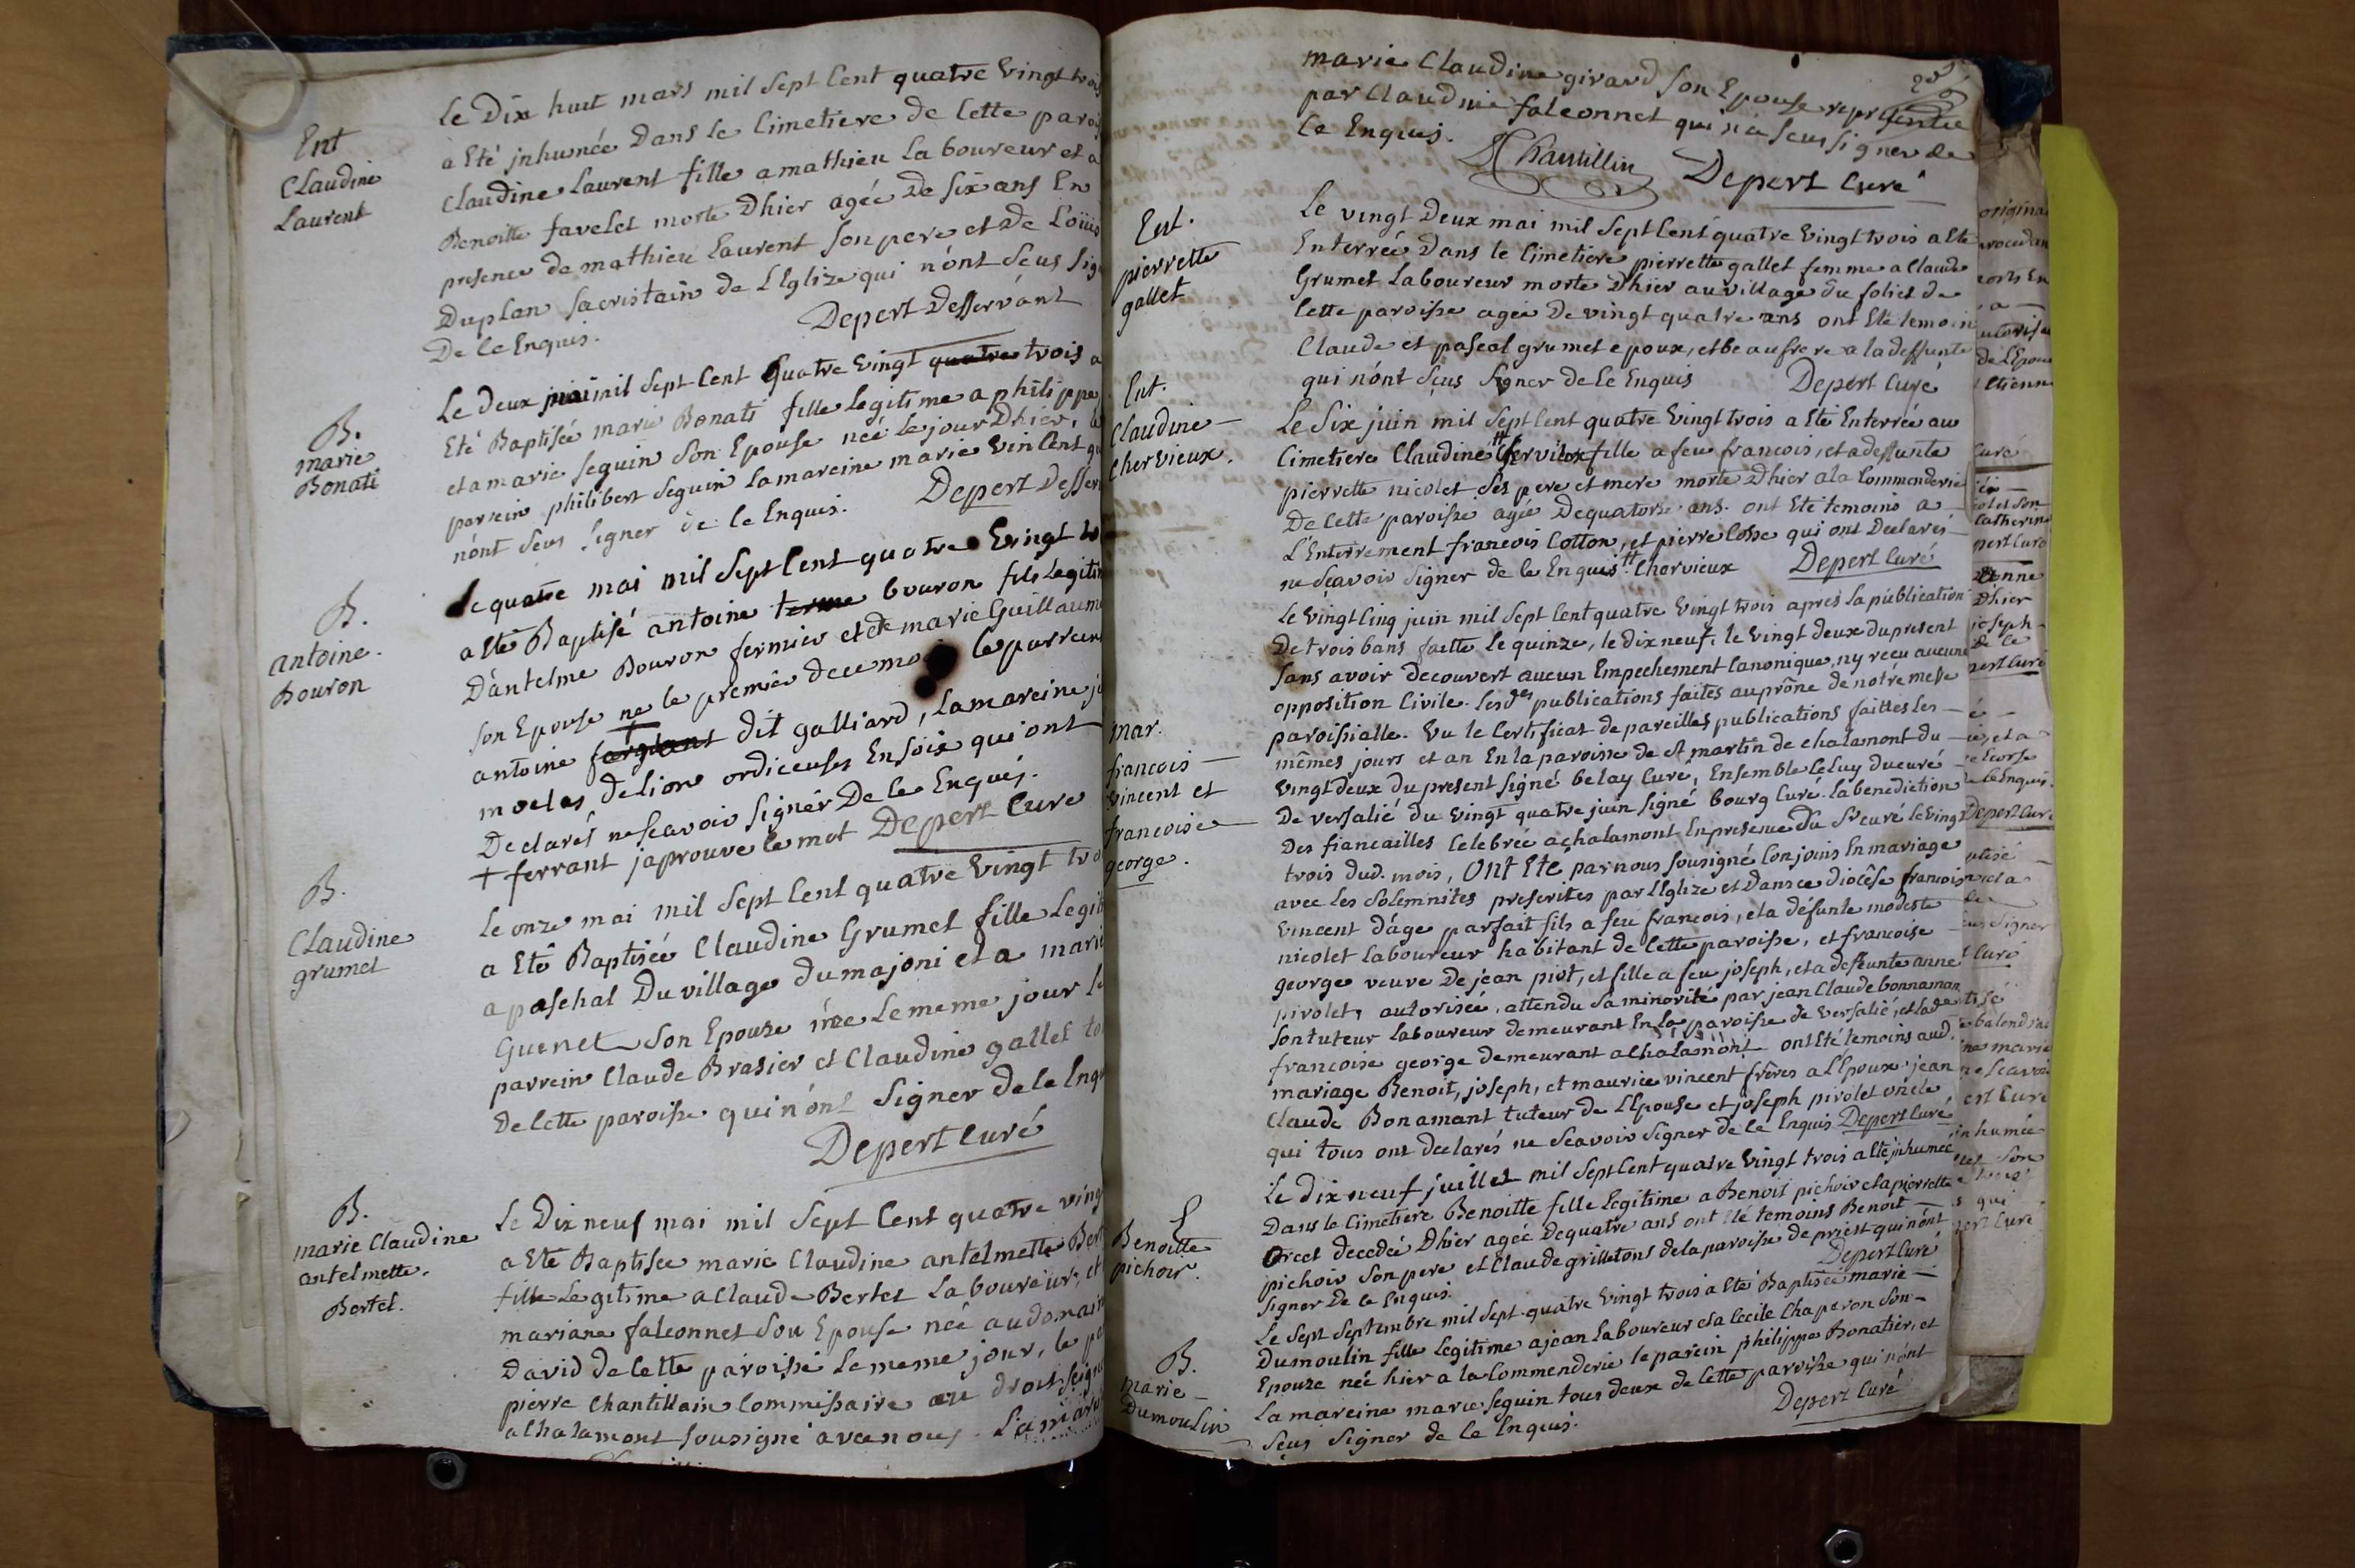 Ent
Claudine
Laurent
Le Dix huit mars mil sept Cent quatre vingt trois
a Eté jnhumée Dans le Cimetiere de Cette parois
Claudine Laurent fille a mathieu Laboureur et a
Benoitte favelet morte Dhier agée De six ans En
presence de mathieu Laurent son pere et De Loüis
Duplan sacristain de LEglize qui n'ont sçus sig
De Ce Enquis.
Depert Desservant
B.
marie
Bonati
Le deux mai mil sept Cent quatre vingt quatre trois a
Eté Baptisée marie Bonati fille Legitime a philippe
et a marie seguin son Epouse née le jour Dhier, le
parrein philibert seguin la mareine marie vincent qu
n'ont sçus signer de Ce Enquis.
Depert Desser
B.
antoine
Bouron
Le quatre mai mil sept Cent quatre vingt tr
a Eté Baptisé antoine terme bouron fils Legitim
D'antelme Bouron fermier et de marie Guillaume
son Epouse né le premier de ce mois le parrein
antoine dit galliard, La mareine j
de lion ordiceuses En soix qui ont
Declarés ne scavoir signér De Ce Enqués.
+ ferrant japrouve le mot Depert Cure
B.
Claudine
grumet
Le onze mai mil sept Cent quatre vingt tro
a Eté Baptisée Claudine Grumet fille Legit
a paschal Du village du majoni et a marie
Guenet son Epouse née Le meme jour le
parrein Claude Brasier et Claudine gallet to
de Cette paroisse qui n'ont signer de Ce Enqu
Depert Curé
B.
marie Claudine
antelmette
Bertet.
Le Dix neuf mai mil sept Cent quatre ving
a Eté Baptisée marie Claudine antelmette Bert
fille Legitime a Claude Bertet Laboureur, et
mariane falconnet son Epouse née au domaine
David de Cette paroisse Le meme jour, le pa
pierre Chantillain Commissaire au droit seign
a Chalamont sousigné avec nous. La mare
marie Claudine girard son Epouse representée
par Claudine falconnet qui n'a sçeus signer de
Ce Enquis.
Chantillin
Depert Curé
Ent.
pierrette
gallet
Le vingt Deux mai mil sept Cent quatre vingt trois a Eté
Enterrée Dans le Cimetiere pierrette gallet femme a Claude
Grumet Laboureur morte Dhier au village du soliet de
Cette paroisse agée De vingt quatre ans ont Eté temoin
Claude et pascal grumet epoux, et beaufrere a la deffunte
qui n'ont sçus signer de Ce Enquis Depert Curé
Ent.
Claudine
Chervieux.
Le six juin mil sept Cent quatre vingt trois a Eté Enterrée au
Cimetiere Claudine fille a feu francois, et a deffunte
pierrette nicolet ses pere et mere morte Dhier a la Commenderie
De Cette paroisse agée De quatorse ans. ont Eté temoins a
L'Enterrement francois Cotton, et pierre Cosse qui ont Declarés
ne sçavoir signer de Ce Enquis. Chervieux Depert Curé
mar.
francois
vincent et
francoise
george.
Le vingt Cinq juin mil sept Cent quatre vingt trois apres la publication
De trois bans faitte le quinze, le dix neuf, le vingt deux du present
sans avoir decouvert aucun Empechement Canonique, ny recu aucune
opposition Civile. Lesdes publications faites au prône de nôtre messe
paroissialle. vu le Certificat de pareilles publications faittes les
mêmes jours et an En la paroisse de st martin de chalamont du
vingt deux du present signé belay Curé, Ensemble Celuy du curé
De versalié du vingt quatre juin signé bourg Curé. la benediction
Des fiancailles Celebrée a chalamont En presence Du Sr curé le vingt
trois dud. mois, Ont Eté par nous sousigné Conjoins En mariage
avec les solemnites prescrites par LEglize et Dans ce diocêse francois
vincent d'âge parfait fils a feu francois, et a défunte modeste
nicolet laboureur habitant de Cette paroisse, et francoise
george veuve De jean piot, et fille a feu joseph, et a deffunte anne
pirolet, autorisée, attendu sa minorité par jean Claude bonnaman
son tuteur laboureur demeurant En la paroisse de versalié, et lade
francoise george demeurant a Chalamont ont Eté temoins aud.
mariage Benoit, joseph, et maurice vincent frêres a l'Epoux jean
Claude Bonamant tuteur de LEpouse et joseph pirolet oncle
qui tous ont declarés ne sçavoir signer de Ce Enquis Depert Curé
E
Benoitte
pichoir.
Le dix neuf juillet mil sept Cent quatre vingt trois a Eté jnhumée
Dans le Cimetiere Benoitte fille Legitime a Benoit pichoir et a pierrette
Orcet decedée Dhier agée De quatre ans ont Eté temoins Benoit
pichoir son pere et Claude grilletons de la paroisse de priest qui n'ont
signer De Ce Enquis.
Depert Curé
B.
marie
Dumoulin
Le sept septembre mil sept quatre vingt trois a Eté Baptisée marie
Dumoulin fille Legitime a jean laboureur et a Cecile Chaperon son
Epouze née hier a la Commenderie le parein philippe Bonatier, et
La mareine marie seguin tous deux de Cette paroisse qui n'ont
sçus signer de Ce Enquis.
Depert Curé